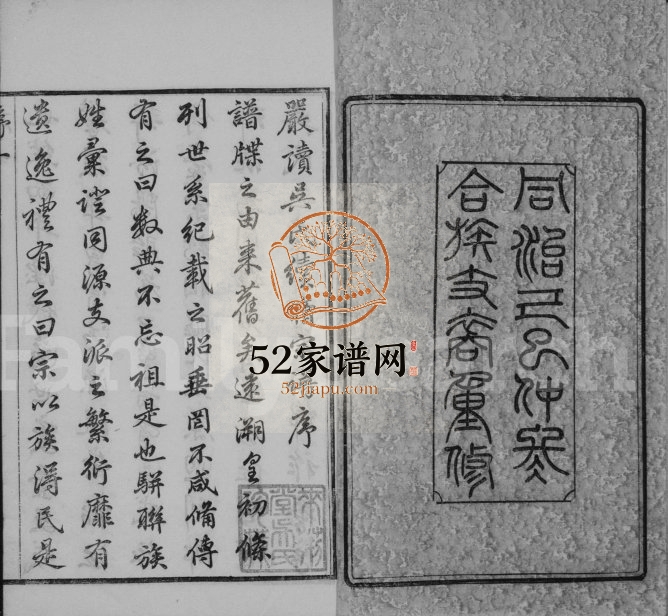 同治五年仲
合族支裔重修
嚴讀吳氏續修宗譜序
譜牒之由来舊矣遠溯皇初條
列世系紀載之昭垂罔不咸備傳
有之曰数典不忘祖是也駢聯族
姓彙證同源支派之繁衍靡有
遺逸禮有之曰宗以族得民是
序一
52家谱网
52jiapu.com